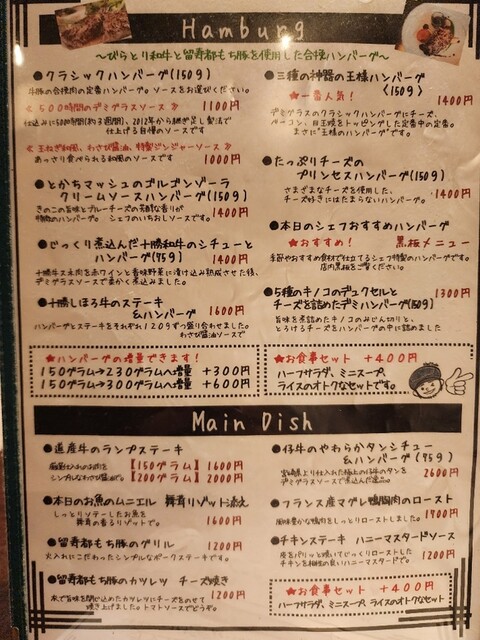 Hamburg
～びらとり和牛と留寿都もち豚を使用した合挽ハンバーグ～
●クラシックハンバーグ(150g)
牛豚の合挽肉の定番ハンバーグ。ソースをお選びください。
≪500時間のデミグラスソース≫ 1100円
仕込みに500時間(約3週間)、2012年から継ぎ足し製法で
仕上げる自慢のソースです
≪玉ねぎ和風、わさび醤油、特製ジンジャーソース≫
あっさり食べられる和風のソースです 1000円
●とかちマッシュのゴルゴンゾーラ
クリームソースハンバーグ(150g)
きのこの旨味とブルーチーズの芳醇な香りが
特徴のハンバーグ。シェフのいちおしソースです。 1400円
●じっくり煮込んだ十勝和牛のシチューと
ハンバーグ(75g) 1400円
十勝牛スネ肉を赤ワインと香味野菜に漬け込み熟成させた後、
デミグラスソースで柔かく煮込みました。
●十勝しほろ牛のステーキ
&ハンバーグ 1600円
ハンバーグとステーキをそれぞれ120gずつ盛り合わせました。
わさび醤油ソースで
★ハンバーグの増量できます!
150グラム→230グラムへ増量 +300円
150グラム→300グラムへ増量 +600円
●三種の神器の王様ハンバーグ
(150g)
★一番人気! 1400円
デミグラスのクラシックハンバーグにチーズ、
ベーコン、目玉焼をトッピングした定番中の定番。
まさに"王様のハンバーグ"です。
●たっぷりチーズの
プリンセスハンバーグ(150g)
さまざまなチーズを使用した、
チーズ好きにはたまらないハンバーグ。 1400円
●本日のシェフおすすめハンバーグ
★おすすめ! 黒板メニュー
季節やおすすめ食材で仕立てるシェフ特製のハンバーグです。
店内黒板をご覧ください。
●5種のキノコのデュクセルと
チーズを詰めたデミハンバーグ(150g) 1300円
旨味を煮詰めたキノコのみじん切りと、
とろけるチーズをハンバーグの中に詰めました
★お食事セット +400円
ハーフサラダ、ミニスープ、
ライスのオトクなセットです。
Main Dish
●道産牛のランプステーキ
厳選仕入れのお肉を 【150グラム】1600円
シンプルなわさび醤油で。【200グラム】2000円
●本日のお魚のムニエル 舞茸リゾット添え
しっとりソテーしたお魚を
舞茸の香るリゾットで。 1600円
●留寿都もち豚のグリル 1200円
火入れにこだわったシンプルなポークステーキです。
●留寿都もち豚のカツレツ チーズ焼き
衣で旨味を閉じ込めたカツレツにチーズをのせて 1200円
焼き上げました。トマトソースでどうぞ。
●仔牛のやわらかタンシチュー
&ハンバーグ(75g)
仕入れた極上の仔牛のタンを 2600円
デミグラスソースで煮込んだ逸品。
●フランス産マグレ鴨胸肉のロースト
風味豊かな鴨肉をしっとりローストしました。 1900円
●チキンステーキ ハニーマスタードソース
皮をパリッと焼いてじっくりローストした 1200円
チキンを相性の良いハニーマスタードで。
★お食事セット +400円
ハーフサラダ、ミニスープ、ライスのオトクなセット